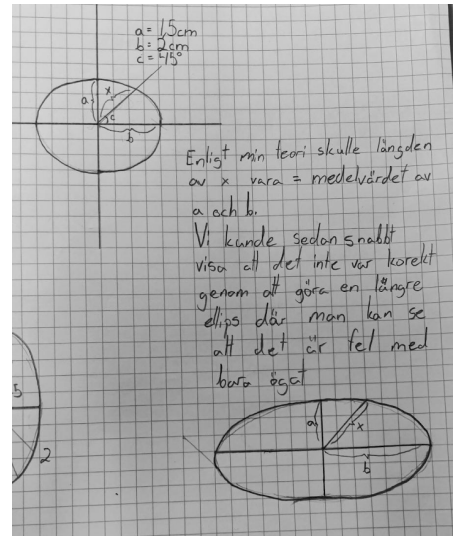 a = 1,5cm
b = 2cm
c = 45°
a
x
c
b
Enligt min teori skulle längden
av x vara = medelvärdet av
a och b.
Vi kunde sedan snabbt
visa att det inte var korekt
genom att göra en längre
ellips där man kan se
att det är fel med
bara ögat
5
2
a
x
b